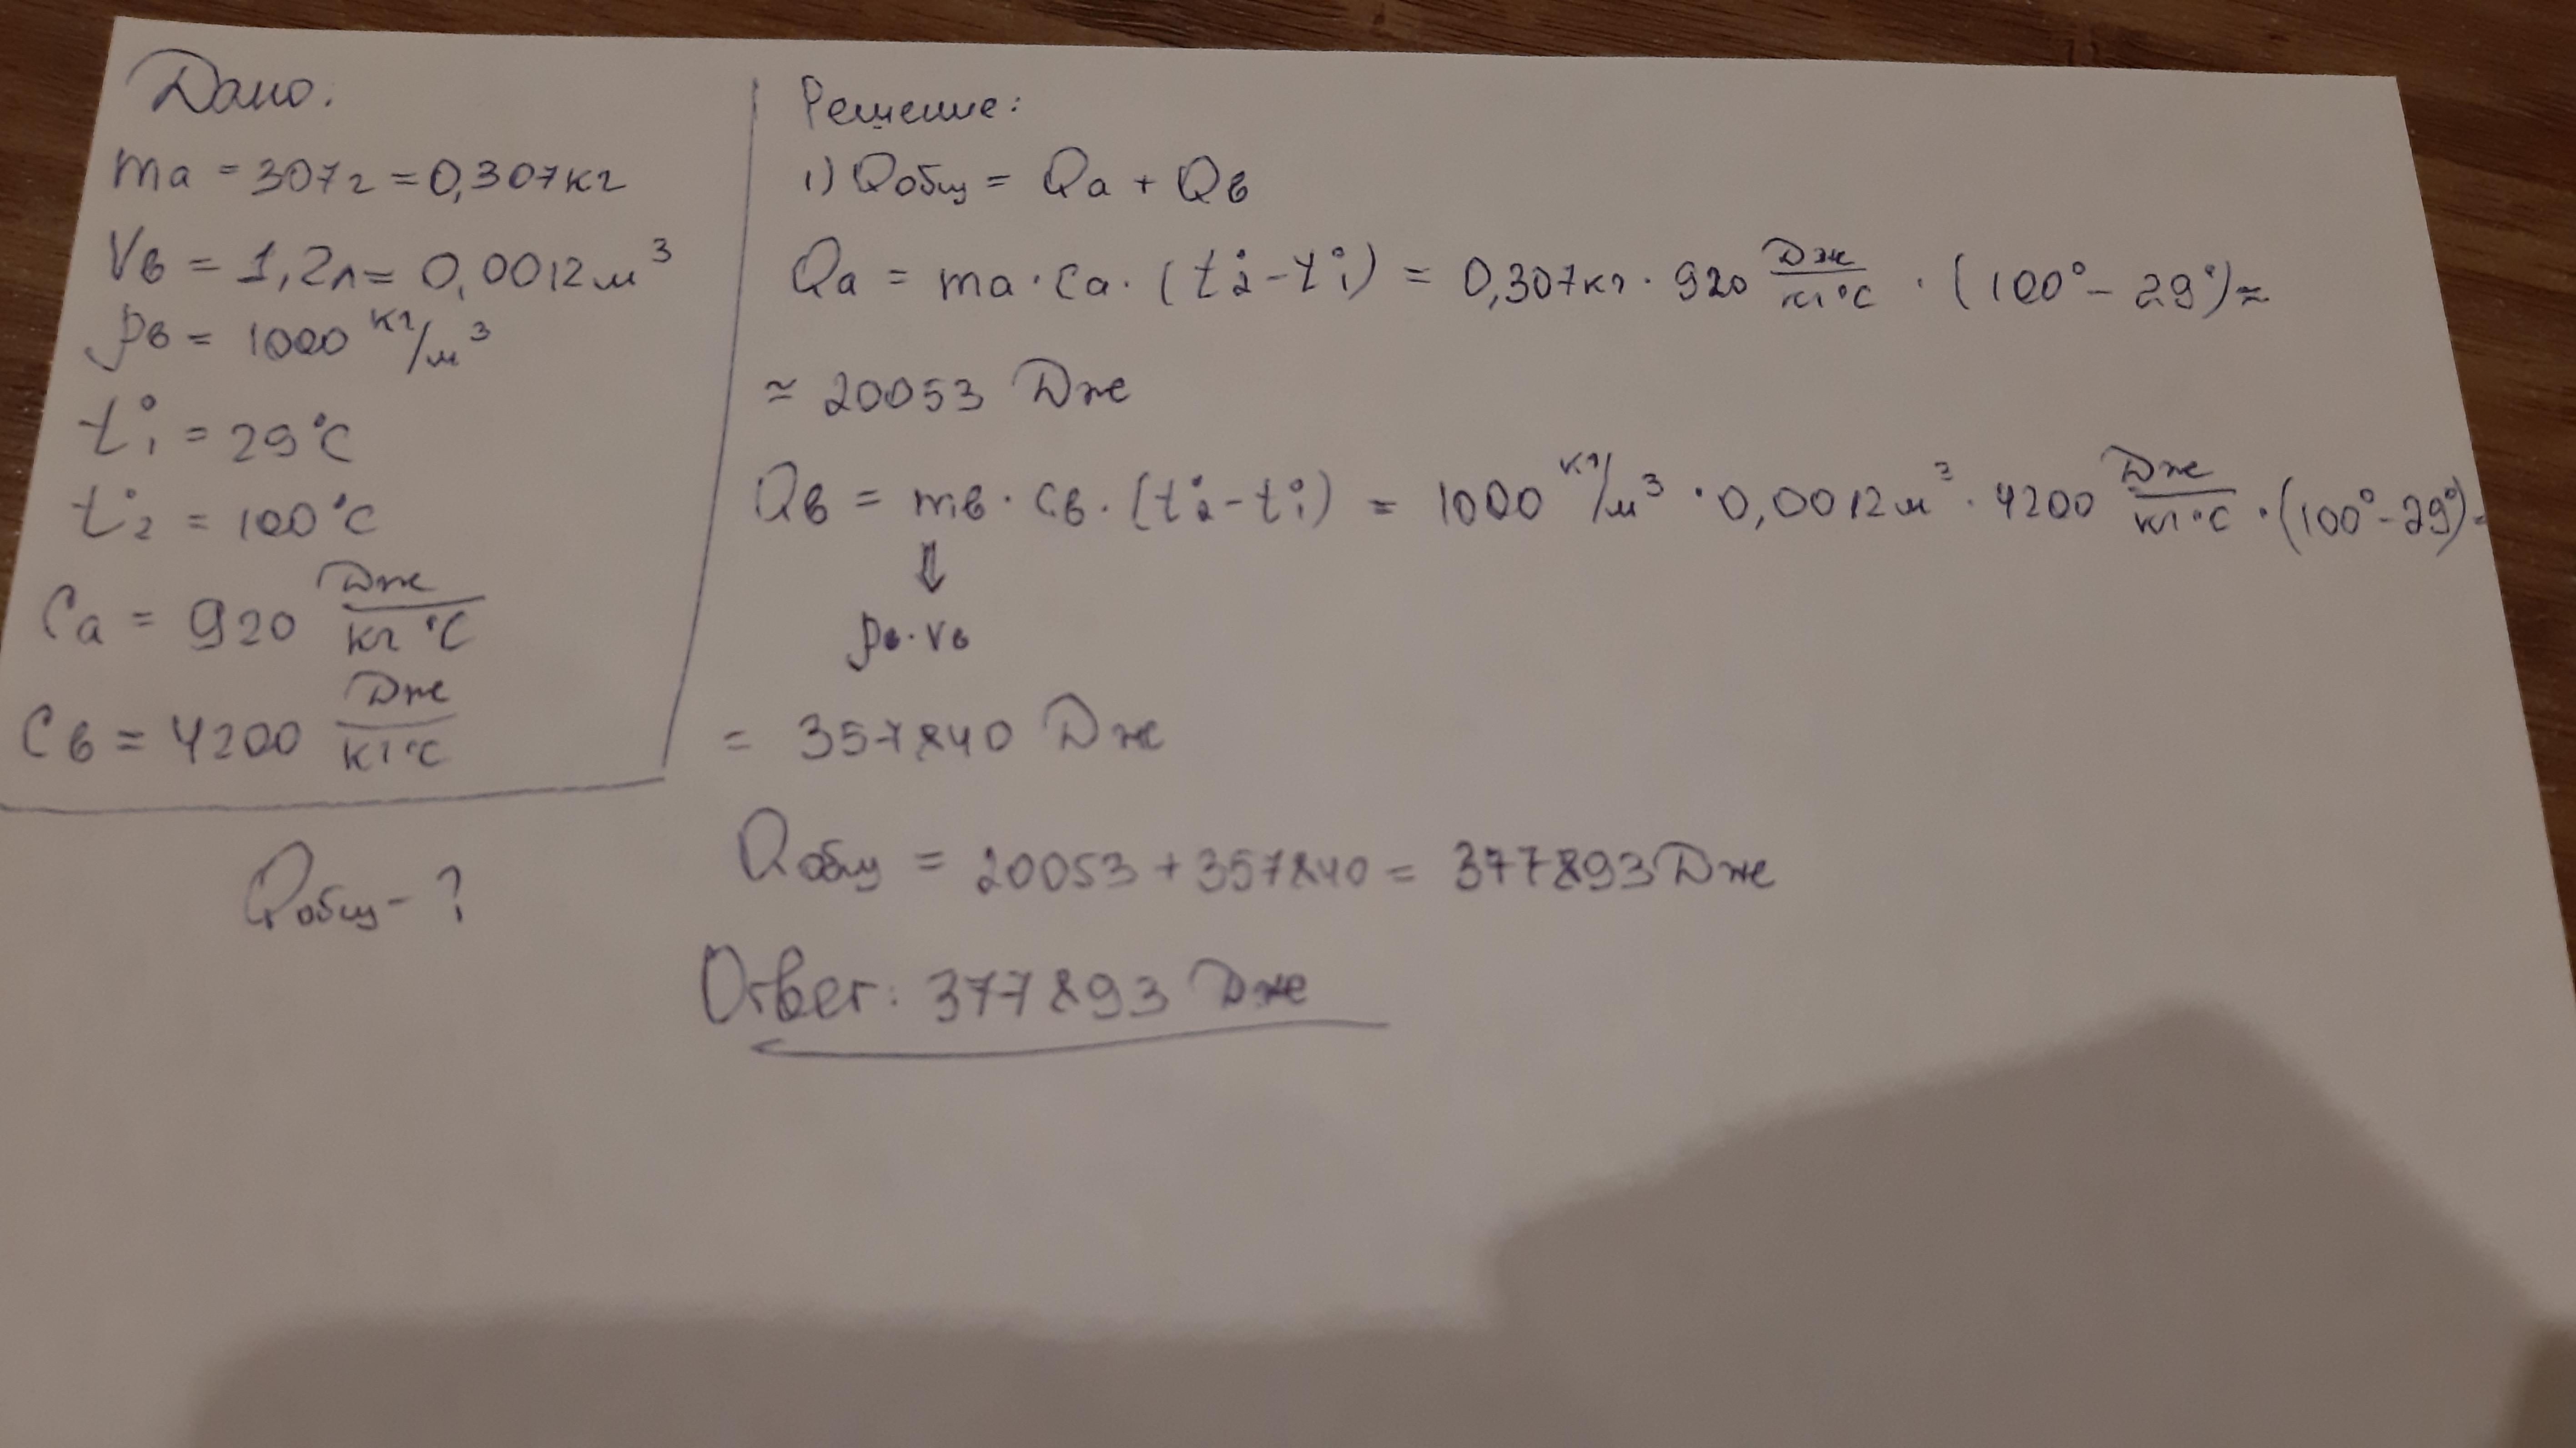 Дано:
mа = 307г = 0,307кг
Vв = 1,2л = 0,0012м³
ρв = 1000 кг/м³
t°₁ = 29°C
t°₂ = 100°C
Cа = 920 Дж/кг°C
Cв = 4200 Дж/кг°C
Qобщ - ?
Решение:
1) Qобщ = Qа + Qв
Qа = mа · Cа · (t°₂ - t°₁) = 0,307кг · 920 Дж/кг°C · (100° - 29°) ≈
≈ 20053 Дж
Qв = mв · Cв · (t°₂ - t°₁) = 1000 кг/м³ · 0,0012м³ · 4200 Дж/кг°C · (100° - 29°) =
⇓
ρв · Vв
= 357840 Дж
Qобщ = 20053 + 357840 = 377893 Дж
Ответ: 377893 Дж